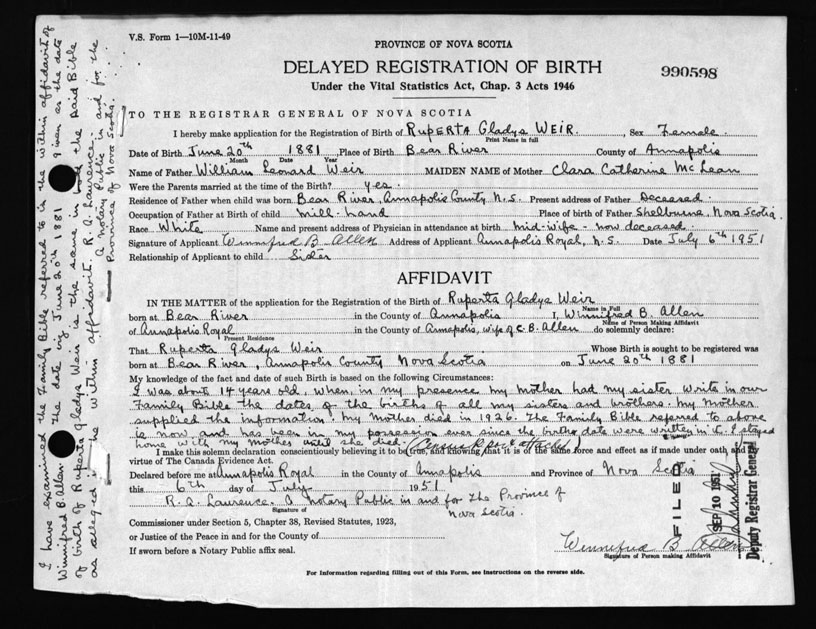 V.S. Form 1—10M-11-49
PROVINCE OF NOVA SCOTIA
DELAYED REGISTRATION OF BIRTH
990598
Under the Vital Statistics Act, Chap. 3 Acts 1946
TO THE REGISTRAR GENERAL OF NOVA SCOTIA
I hereby make application for the Registration of Birth of RUPERTA Gladys WEIR. , Sex Female.
Print Name in full
Date of Birth June 20th 1881 Place of Birth Bear River County of Annapolis
Month Date Year
Name of Father William Leonard Weir MAIDEN NAME of Mother Clara Catherine McLean
Were the Parents married at the time of Birth? yes.
Residence of Father when child was born. Bear River, Annapolis County N.S. Present address of Father Deceased.
Occupation of Father at Birth of child mill-hand Place of birth of Father Shelburne, Nova Scotia.
Race White Name and present address of Physician in attendance at birth mid-wife - now deceased.
Signature of Applicant Winnifred B. Allen Address of Applicant Annapolis Royal, N.S. Date July 6th 1951
Relationship of Applicant to child Sister
AFFIDAVIT
IN THE MATTER of the application for the Registration of the Birth of Ruperta Gladys Weir
Name in Full
born at Bear River in the County of Annapolis I, Winnifred B. Allen
Name of Person Making Affidavit
of Annapolis Royal in the County of Annapolis, wife of C. B. Allen do solemnly declare:
Present Residence
That Ruperta Gladys Weir Whose Birth is sought to be registered was
born at Bear River, Annapolis County Nova Scotia on June 20th 1881
My knowledge of the fact and date of such Birth is based on the following Circumstances:
I was about 14 years old, when, in my presence my mother had my sister write in our
Family Bible the dates of the births of all my sisters and brothers. My Mother
supplied the information. My Mother died in 1926. The Family Bible referred to above
is now and has been in my possession ever since the birth date were written in it. I stayed
home with my mother until she died.
I make this solemn declaration conscientiously believing it to be true, and knowing that it is of the same force and effect as if made under oath and by
virtue of The Canada Evidence Act.
Declared before me at Annapolis Royal in the County of Annapolis and Province of Nova Scotia
this 6th day of July 1951
R. A. Laurence. A Notary Public in and for the Province of
Signature of
Nova Scotia.
Commissioner under Section 5, Chapter 38, Revised Statutes, 1923,
or Justice of the Peace in and for the County of
If sworn before a Notary Public affix seal.
Winnifred B Allen
Signature of Person making Affidavit
For Information regarding filling out of this Form, see Instructions on the reverse side.
FILED
SEP 10 1951
Deputy Registrar General
I have examined the Family Bible referred to in the within affidavit of
Winnifred B. Allen. The date viz June 20th 1881 given as the date
of birth of Ruperta Gladys Weir is the same in the said Bible
as alleged in the within affidavit. R. A. Laurence.
A Notary Public in and for the
Province of Nova Scotia.